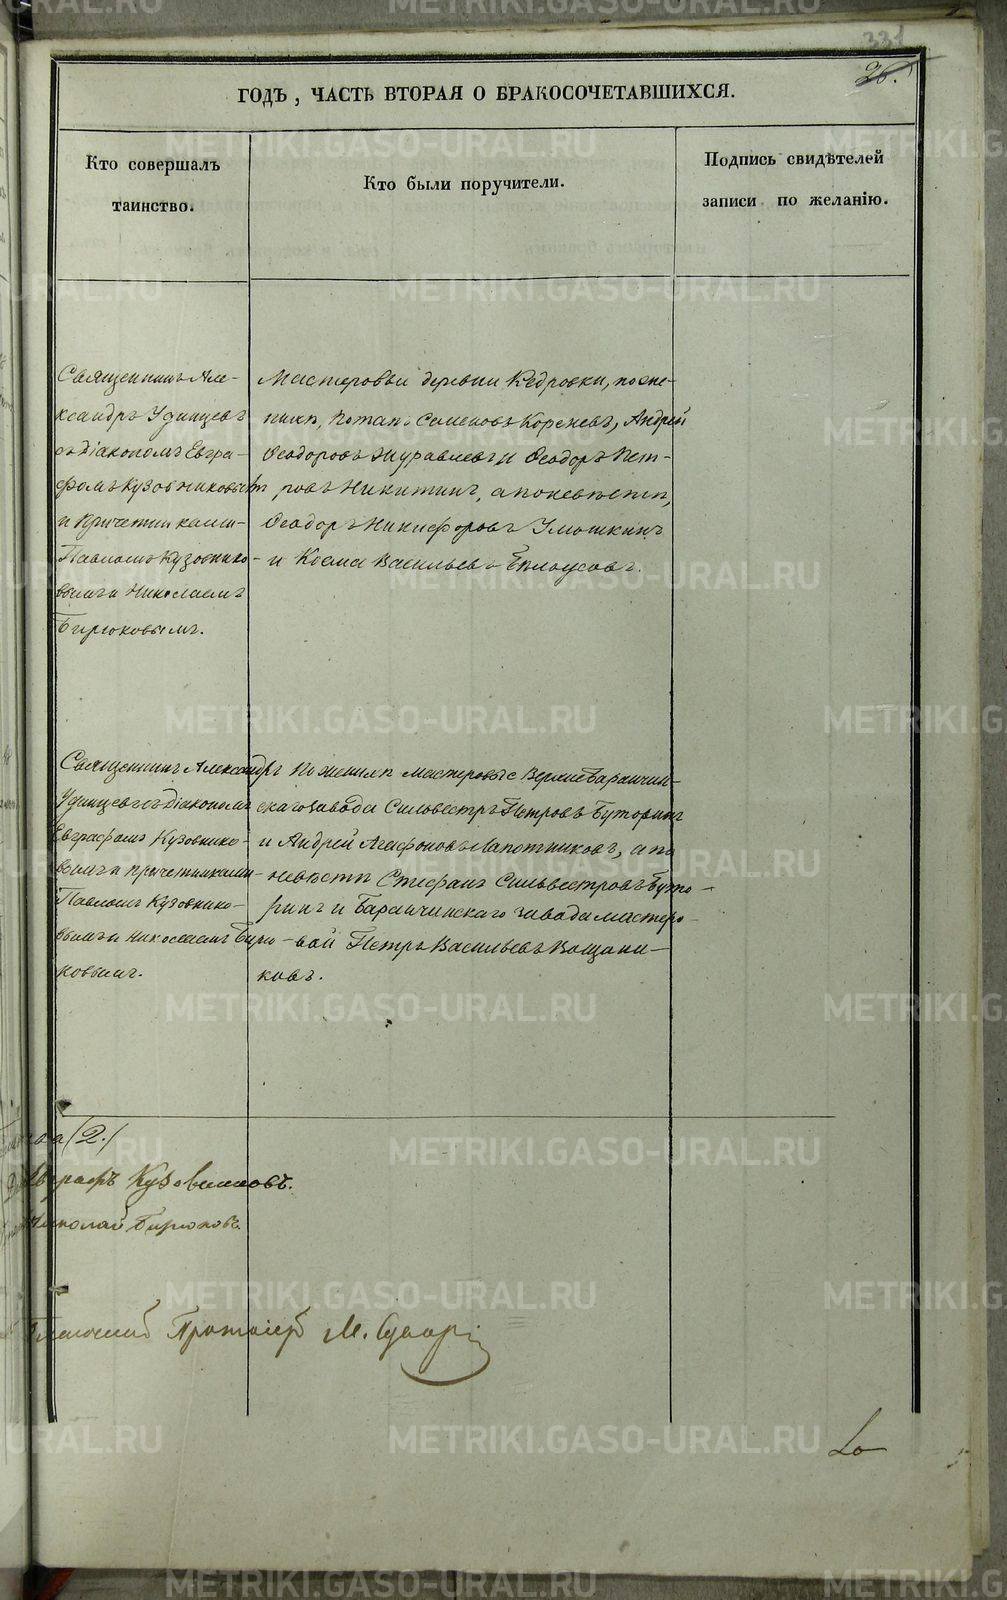 331
26.
ГОДЪ, ЧАСТЬ ВТОРАЯ О БРАКОСОЧЕТАВШИХСЯ.
Кто совершалъ
таинство.
Кто были поручители.
Подпись свидѣтелей
записи по желанію.
Священникъ Але-
ксандръ Удинцевъ
съ Діакономъ Евгра-
фомъ Кузовниковымъ
и Причетниками-
Павломъ Кузовнико-
вымъ и Николаемъ
Бирюковымъ.
Мастеровыи деревни Кедровки, по же-
нихѣ, Потапъ Семеновъ Кореневъ, Андрей
Ѳеодоровъ Журавлевъ и Ѳеодоръ Пет-
ровъ Никитинъ, а по невѣстѣ,
Ѳеодоръ Никифоровъ Умошкинъ
и Козма Васильевъ Бѣлоусовъ.
Священникъ Александръ
Удинцевъ съ Діакономъ
Евграфомъ Кузовнико-
вымъ и причетниками-
Павломъ Кузовнико-
вымъ и Николаемъ Бирю-
ковымъ.
По женихѣ мастеровые Верхнебаранчин-
скаго завода Сильвестръ Петровъ Буторинъ
и Андрей Агафоновъ Лапотниковъ, а по
невѣстѣ Стефанъ Сильвестровъ Буто-
ринъ и Баранчинскаго завода мастеро-
вой Петръ Васильевъ Вощани-
ковъ.
(2.)
Евграфъ Кузовниковъ.
Николай Бирюковъ.
Протоіерей М.
METRIKI.GASO-URAL.RU